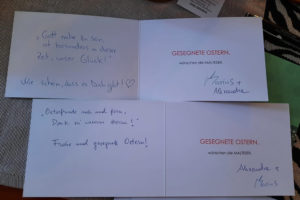 „Gott nahe zu sein
ist besonders in dieser
Zeit, unser Glück!"
Wie schön, dass es Dich gibt! ♡
GESEGNETE OSTERN,
wünschen die MALTESER.
Marius +
Alexandra
„Osterfreude nah und fern,
Dank sei unserem Herrn!"
Frohe und gesegnete Ostern!
GESEGNETE OSTERN,
wünschen die MALTESER.
Alexandra +
Marius